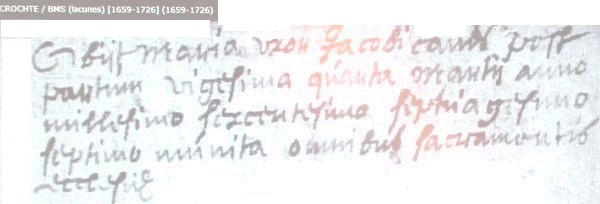 CROCHTE / BMS (lacunes) [1659-1726] (1659-1726)
Obijt maria uxor Jacobi caudt post
partum vigesima quarta martii anno
millesimo sexcentesimo septuagesimo
septimo munita omnibus sacramentis
ecclesiæ